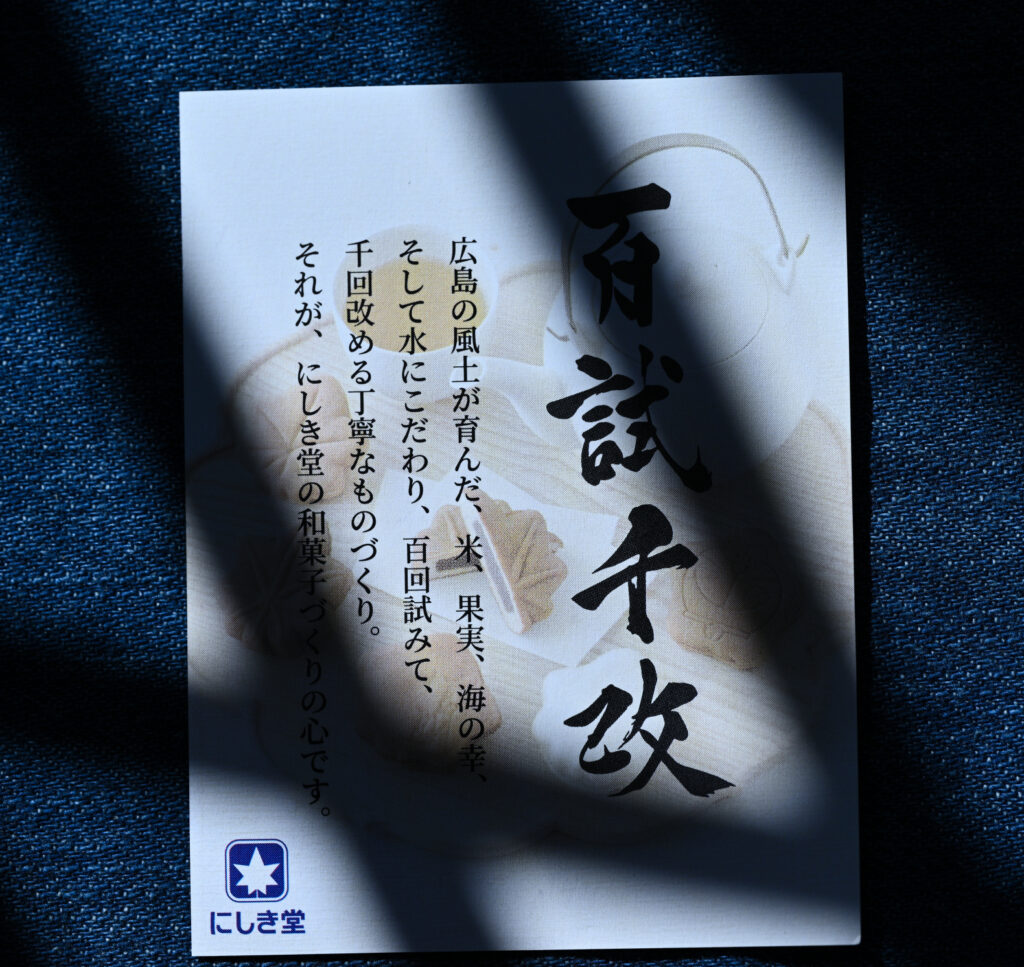 百試千改
広島の風土が育んだ、米、果実、海の幸、
そして水にこだわり、百回試みて、
千回改める丁寧なものづくり。
それが、にしき堂の和菓子づくりの心です。
にしき堂